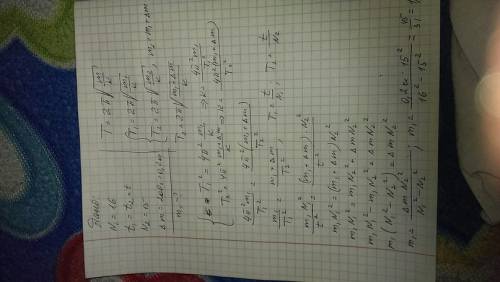 Дано:
N₁ = 16
t₁ = t₂ = t
N₂ = 15
m₁ - ?
T = 2π√(m/k)
{ T₁ = 2π√(m₁/k)
{ T₂ = 2π√(m₂/k), m₂ = m₁ + Δm
T₂ = 2π√((m₁+Δm)/k)
{ T₁² = 4π² m₁/k ⇒ k = 4π² m₁/T₁²
{ T₂² = 4π² (m₁+Δm)/k ⇒ k = 4π²(m₁+Δm)/T₂²
4π² m₁/T₁² = 4π²(m₁+Δm)/T₂²
m₁/T₁² = (m₁+Δm)/T₂², T₁ = t/N₁, T₂ = t/N₂
m₁N₁²/t² = (m₁+Δm)N₂²/t²
m₁N₁² = (m₁+Δm)N₂²
m₁N₁² = m₁N₂² + ΔmN₂²
m₁N₁² - m₁N₂² = ΔmN₂²
m₁(N₁² - N₂²) = ΔmN₂²
m₁ = ΔmN₂²/(N₁² - N₂²); m₁ = 0,2кг·15²/(16² - 15²) = 45/31 =